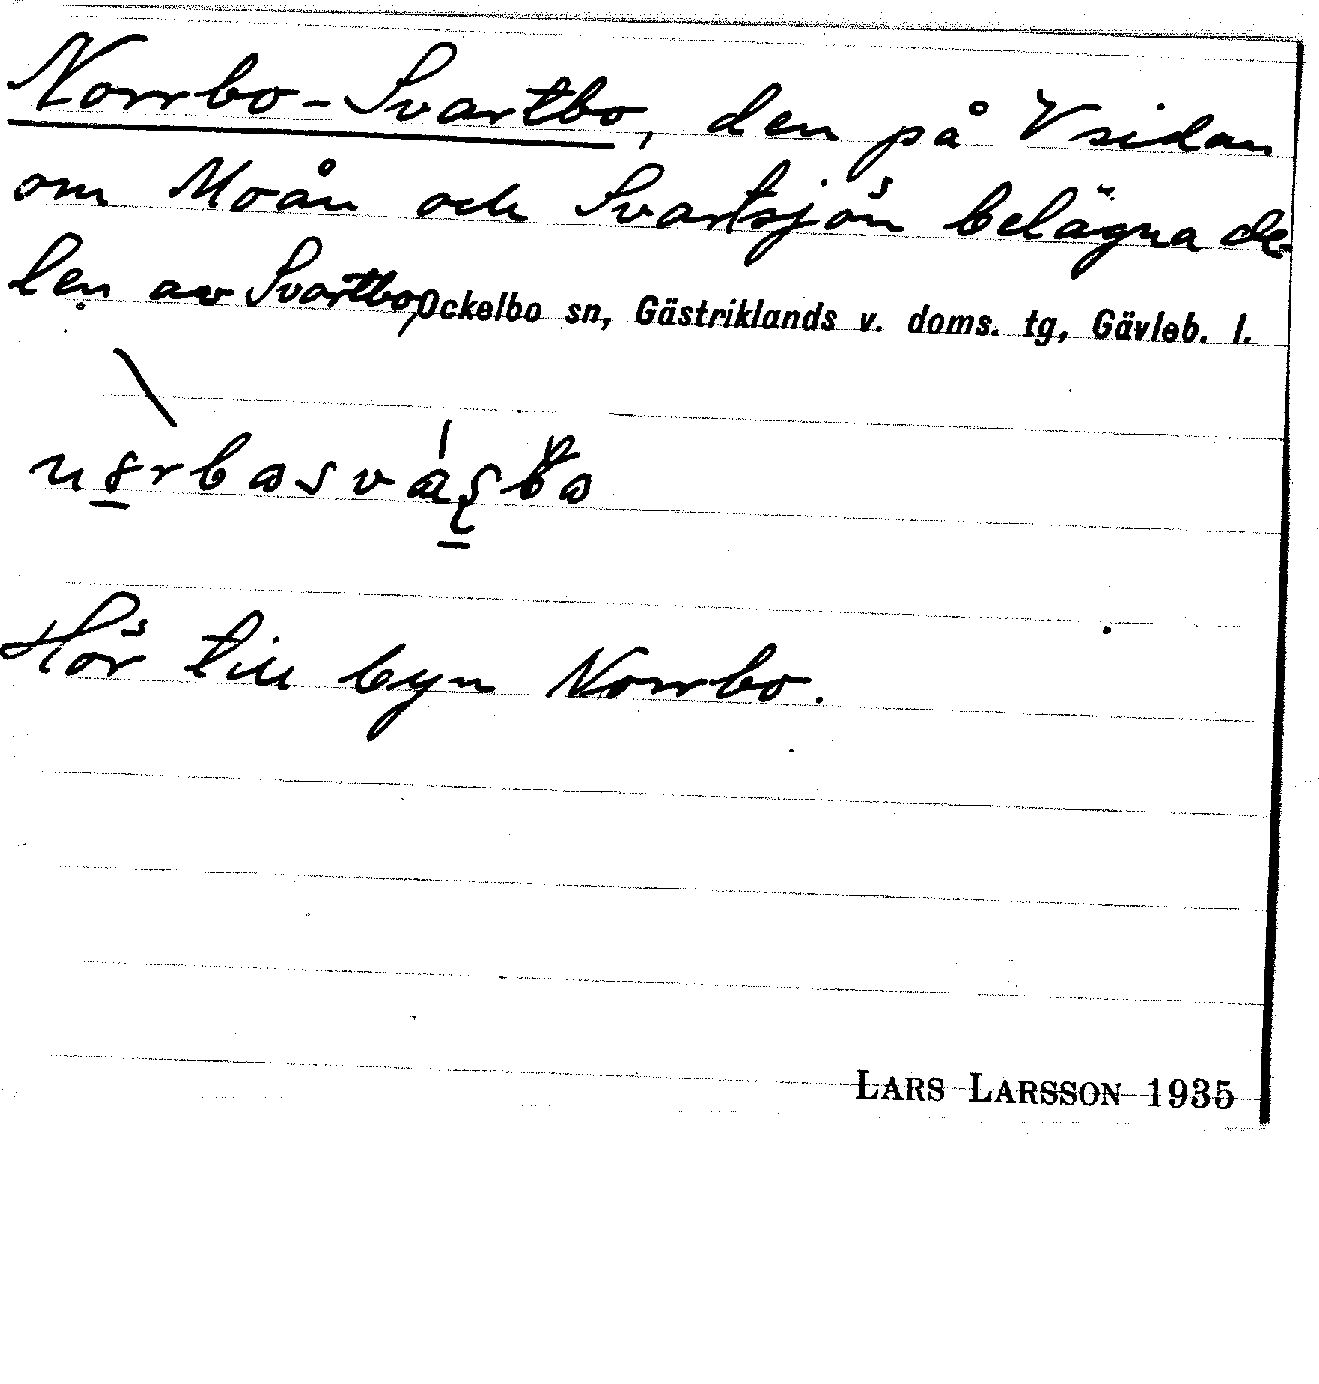 Norrbo-Svartbo, den på Vsidan
om Moån och Svartsjön belägna de-
len av Svartbo, Ockelbo sn, Gästriklands v. doms. tg, Gävleb. l.
Hör till byn Norrbo.
LARS LARSSON 1935